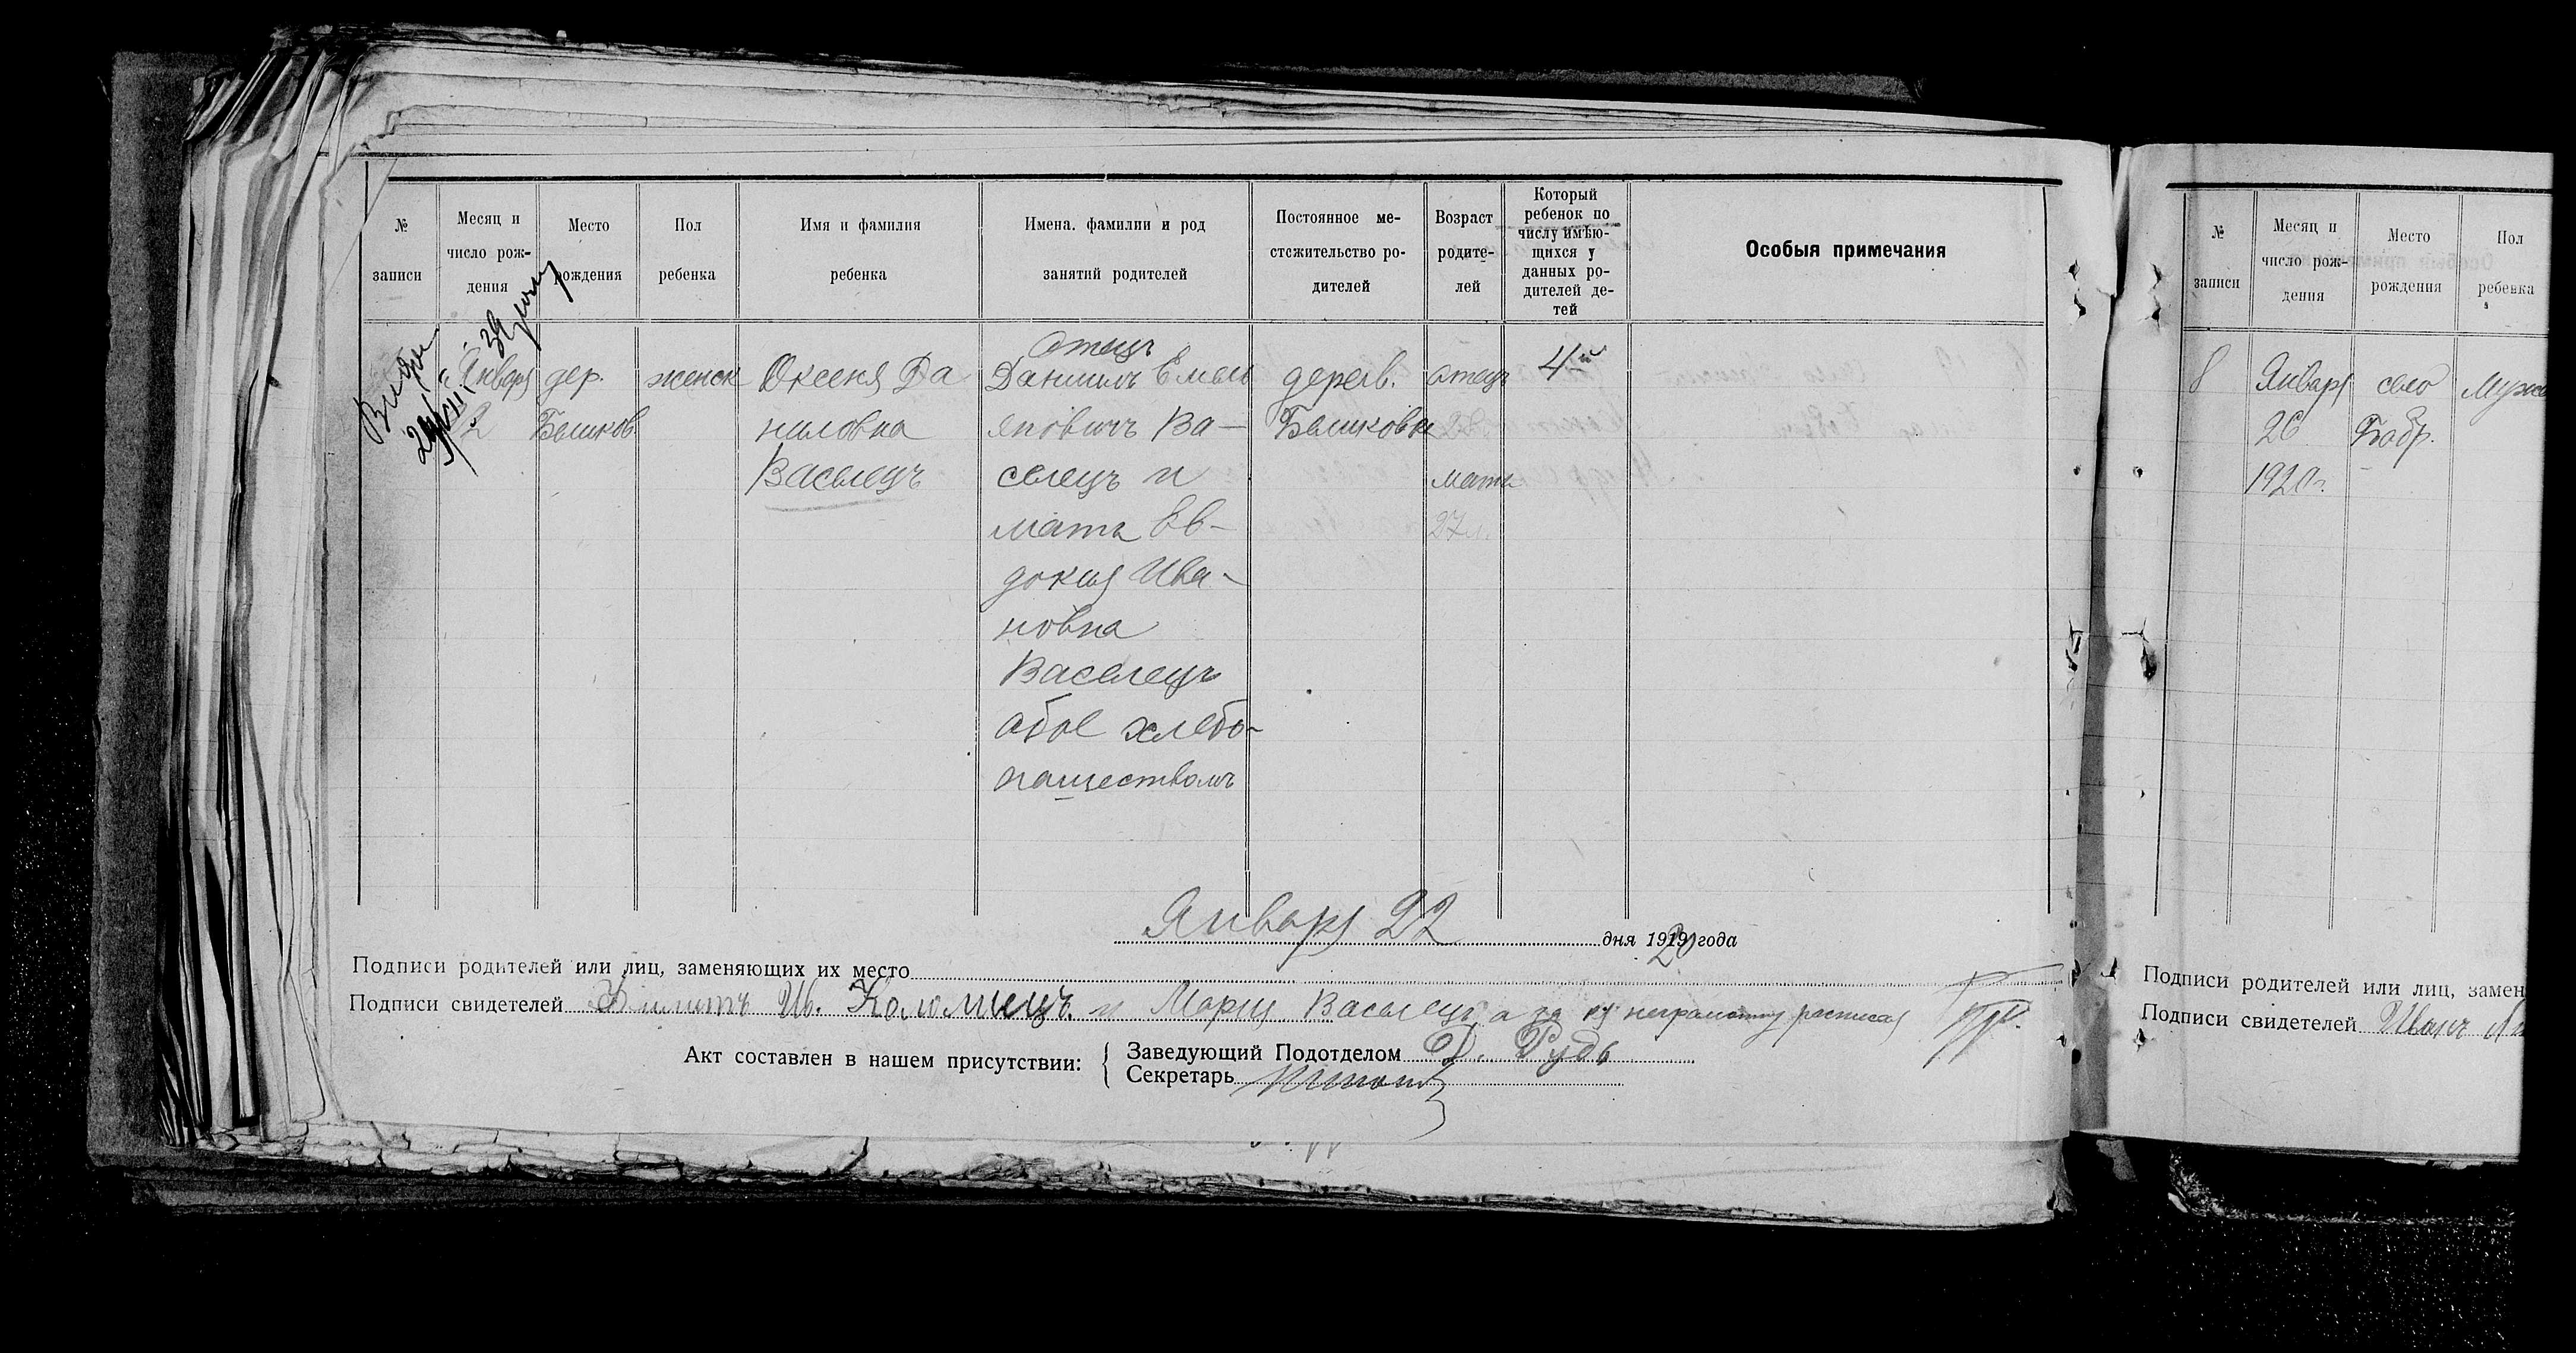 № записи
Месяц и число рож-дения
Место рождения
Пол ребенка
Имя и фамилия ребенка
Имена. фамилии и род занятий родителей
Постоянное ме-стожительство ро-дителей
Возраст родите-лей
Который ребенок по числу имѣю-щихся у данных ро-дителей де-тей
Особыя примечания
Января
дер.
женск
Оксеня Да
ниловна
Василецъ
Отецъ
Даниилъ Емель
яновичъ Ва-
силецъ и
мать Ев-
докия Ива-
новна
Василецъ
обое хлебо-
пашествомъ
дерев.
отецъ
мать
27 л.
4й
Январь 22
дня 1919 года
20
Подписи родителей или лиц, заменяющих их место
Подписи свидетелей Филиппъ Ив. Коломиецъ и Мария Василецъ а за неграмотну расписал
Акт составлен в нашем присутствии:
Заведующий Подотделом Д. Рудь
Секретарь
№ записи
Месяц и число рож-дения
Место рождения
Пол ребенка
8
Январь
26
1920 г.
село
Бобр.
Муж
Подписи родителей или лиц, замен
Подписи свидетелей Иванъ